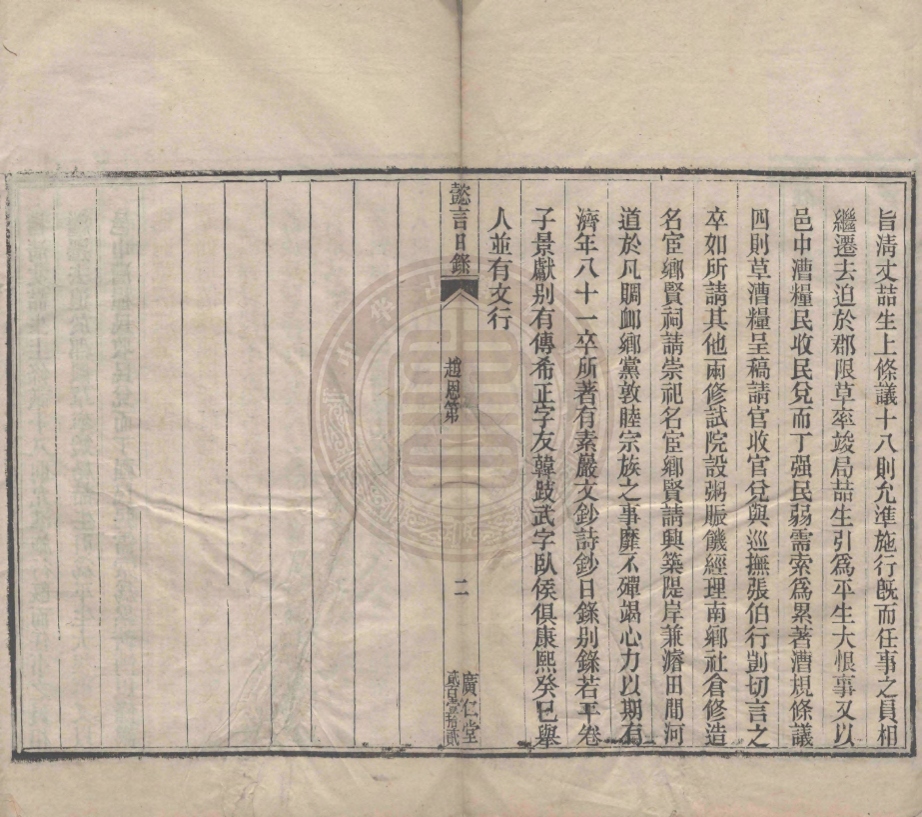 旨淸丈喆生上條議十八則允準施行旣而任事之員相
繼遷去迫於郡限草率竣局喆生引爲平生大恨事又以
邑中漕糧民收民兌而丁强民弱需索爲累著漕規條議
四則草漕糧呈稿請官收官兌與巡撫張伯行剴切言之
卒如所請其他兩修試院設粥賑饑經理南鄉社倉修造
名宦鄉賢祠請崇祀名宦鄉賢請興築隄岸兼濬田間河
道於凡賙卹鄉黨敦睦宗族之事靡不殫竭心力以期有
濟年八十一卒所著有素巖文鈔詩鈔日錄别錄若干卷
子景獻别有傳希正字友韓跂武字臥侯俱康熙癸巳舉
人並有文行
懿言日錄
趙恩第
二
廣仁堂